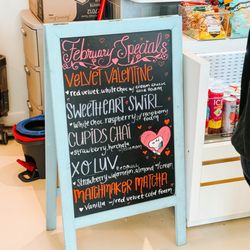 February Specials
Velvet Valentine
• red velvet, white choc w/ cream cheese
Sweetheart Swirl
White choc, raspberry w/ raspberry foam
Cupids Chai
• strawberry,
XO Luv
• Strawberry, almond w/ cream
Matchmaker Matcha
• Vanilla w/ red velvet cold foam